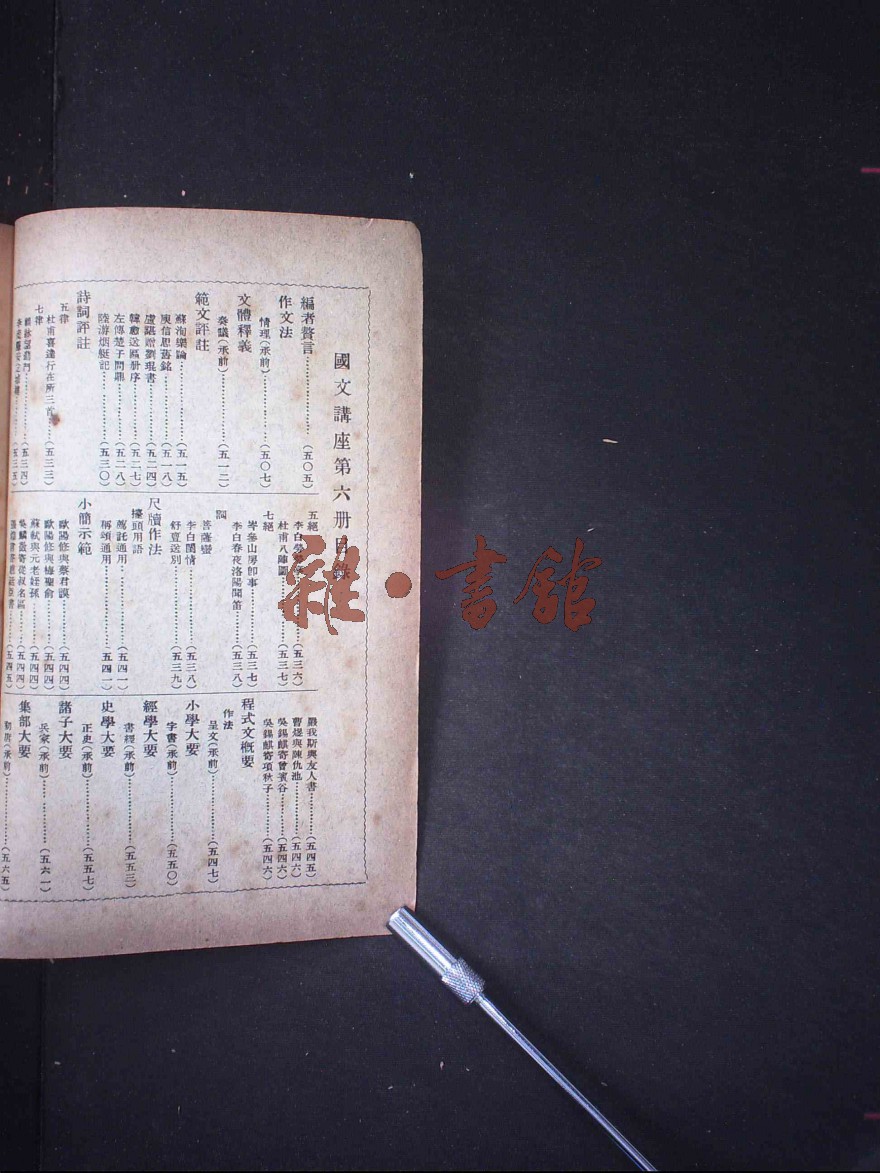 國文講座第六册目錄
編者贅言……………(五〇五)
作文法
情理(承前)……………(五〇七)
文體釋義
奏議(承前)……………(五一二)
範文評註
蘇洵樂論……………(五一五)
庾信思舊銘……………(五一八)
盧諶贈劉琨書……………(五二四)
韓愈送區册序……………(五二七)
左傳楚子問鼎……………(五二八)
陸游烟艇記……………(五三〇)
詩詞評註
五律
杜甫喜達行在所三首……(五三三)
七律
(五三四)
(五三五)
五絕
李白勞勞亭……………(五三六)
杜甫八陣圖……………(五三七)
七絕
岑參山房卽事……………(五三七)
李白春夜洛陽聞笛……………(五三八)
詞
菩薩蠻
李白閨情……………(五三八)
舒亶送別……………(五三九)
尺牘作法
擡頭用語
薦託通用……………(五四一)
稱頌通用……………(五四一)
小簡示範
歐陽修與蔡君謨……………(五四四)
歐陽修與梅聖俞……………(五四四)
蘇軾與元老姪孫……………(五四四)
寄從叔名區……(五四四)
(五四五)
嚴我斯與友人書……………(五四五)
曹煜與陳仇池……………(五四六)
吳錫麒寄曾賓谷……………(五四六)
吳錫麒寄項秋子……………(五四六)
程式文概要
作法
呈文(承前)……………(五四七)
小學大要
字書(承前)……………(五五〇)
經學大要
書經(承前)……………(五五三)
史學大要
正史(承前)……………(五五七)
諸子大要
兵家(承前)……………(五六一)
集部大要
(承前)……………(五六五)
雜·書館